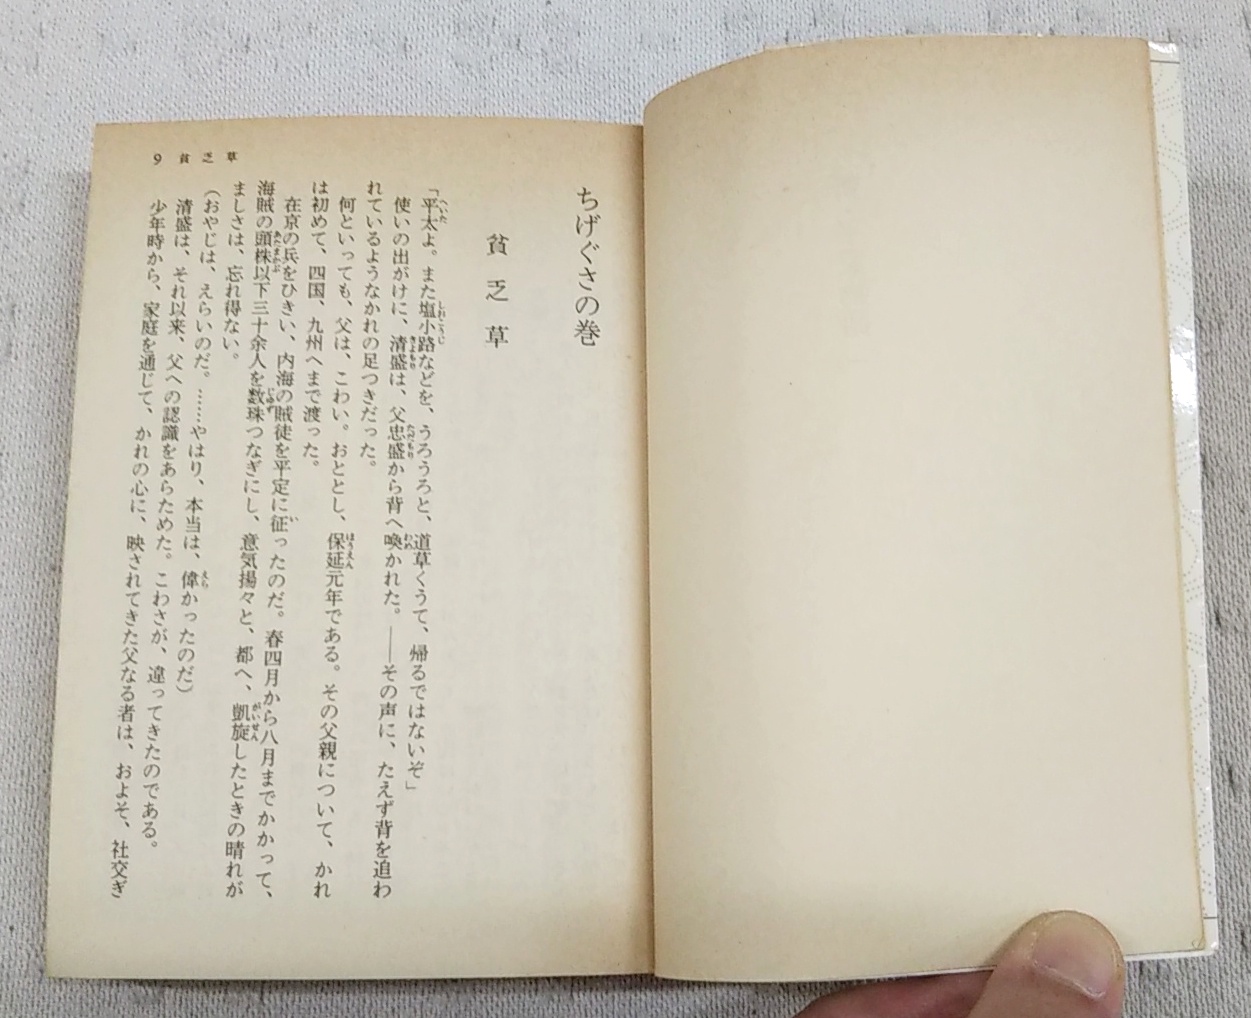 ちげぐさの巻
貧乏草
「平太よ。また塩小路などを、うろうろと、道草くうて、帰るではないぞ」
使いの出がけに、清盛は、父忠盛から背へ喚かれた。――その声に、たえず背を追わ
れているようなかれの足つきだった。
何といっても、父は、こわい。おととし、保延元年である。その父親について、かれ
は初めて、四国、九州へまで渡った。
在京の兵をひきい、内海の賊徒を平定に征ったのだ。春四月から八月までかかって、
海賊の頭株以下三十余人を数珠つなぎにし、意気揚々と、都へ、凱旋したときの晴れが
ましさは、忘れ得ない。
（おやじは、えらいのだ。……やはり、本当は、偉かったのだ）
清盛は、それ以来、父への認識をあらためた。こわさが、違ってきたのである。
少年時から、家庭を通じて、かれの心に、映されてきた父なる者は、およそ、社交ぎ
9 貧乏草